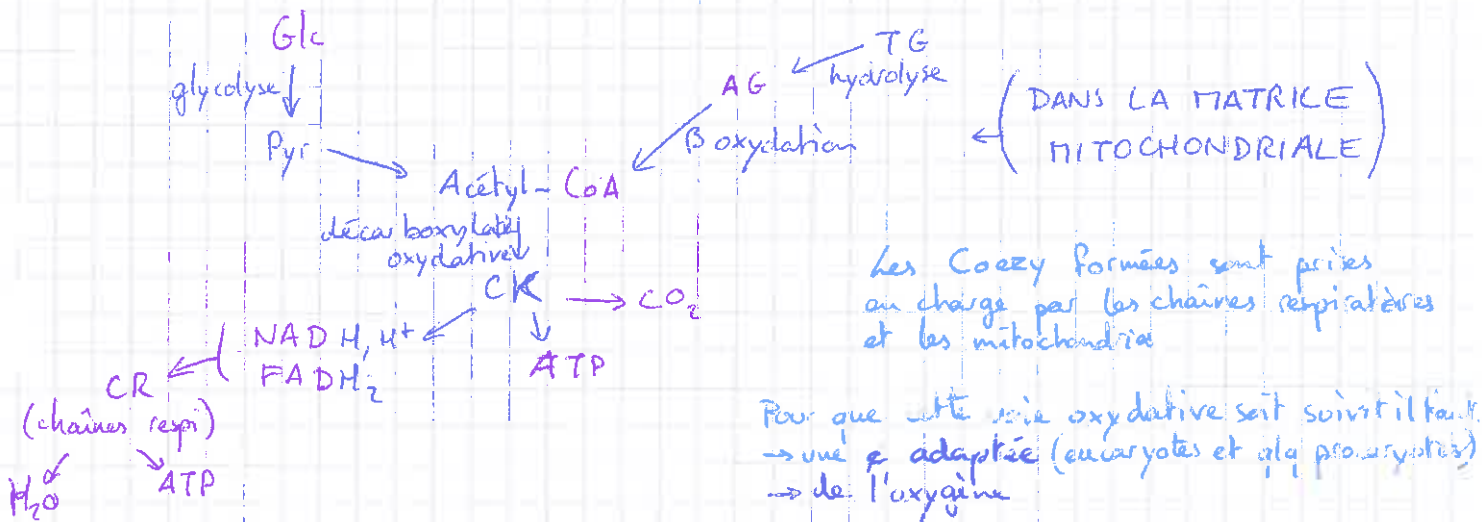 Glc
glycolyse
Pyr
TG
hydrolyse
AG
β oxydation
(DANS LA MATRICE
MITOCHONDRIALE)
Acétyl-CoA
décarboxylat°
oxydative
CK
CO₂
ATP
NADH, H+
FADH₂
CR
(chaînes respi)
H₂O
ATP
Les Coezy formées sont prises
en charge par les chaînes respiratoires
et les mitochondria
Pour que cette voie oxydative soit suivit il faut
→ une adaptée (eucaryotes et qlq procaryotes)
→ de l'oxygène